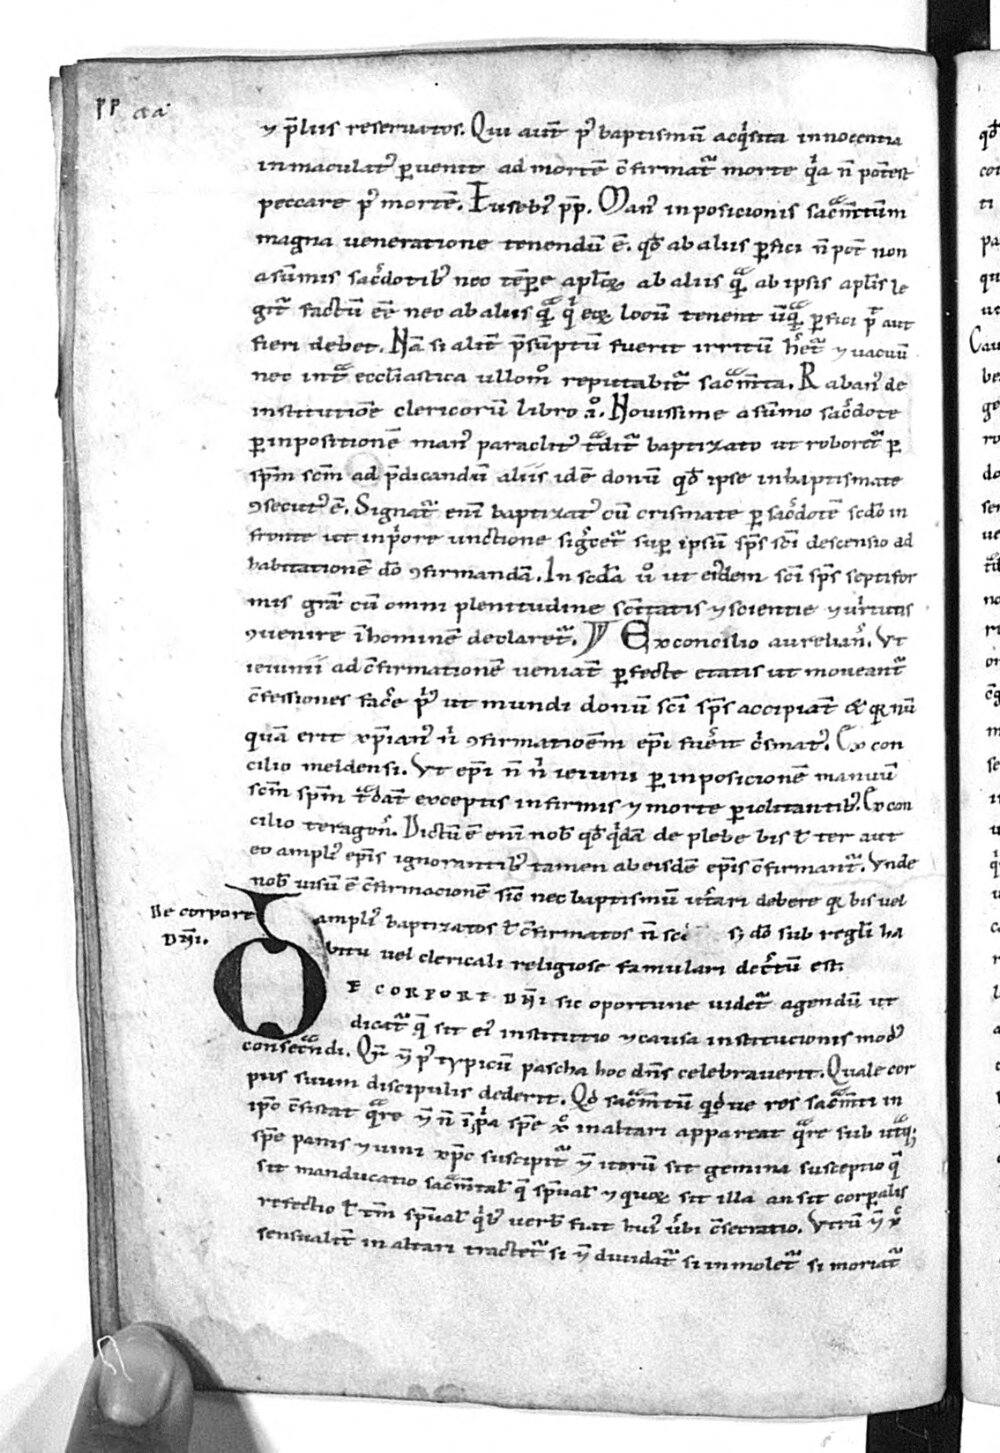 pp aa
⁊ p̄liis reseruatos. Qui aut̄ p᷒ baptismū acq̇sita innocentia
inmaculat᷒ ꝑuenit ad mortē c̄firmat᷑ morte q̇a n̄ potest
peccare p᷒ mortē. Euseb᷒ pp̄. Man᷒ inposicionis sac̄mtum
magna ueneratione tenendū ē. qd̄ ab aliis ꝑfici n̄ pot̄ non
a sūmis sac̓dotib᷒ nec tēpore apl̄oꝝ ab aliis q̄ ab ipsis apl̄is le
git᷑ factū eē nec ab aliis q̄ q̇ eoꝝ locū tenent ūq̄ ꝑfici p̄t aut
fieri debet. Nā si alit̄ p̄sūptū fuerit irritū h̓et᷑ ⁊ uacuū
nec int̄ eccl̄iastica ullom̊ reputabit᷑ sac̄mta. Raban᷒ de
institutiōe clericorū libro .i̊. Nouissime a sūmo sac̓dote
ꝑ inpositionē man᷒ paraclit᷒ t̄dit᷑ baptizato ut roboret᷑ ꝑ
sp̄m scm̄ ad p̄dicandū aliis idē donū qd̄ ipse in baptismate
ꝯsecut᷒ ē. Signat᷑ enī baptizat᷒ cū crismate ꝑ sac̓dotē scd̄o in
fronte ut in p̓ore unctione sig̓cet᷑ suꝑ ipsū sp̄s sc̄i descensio ad
habitationē dō ꝯfirmandā. In scd̄a ů ut ei᷒dem sc̄i sp̄s septifor
mis grā cū omni plenitudine sc̄itatis ⁊ scientie ⁊ uirtutis
ꝯuenire ī hominē declaret᷑. Ex concilio aurelian᷒. Ut
ieiunii ad c̄firmationē ueniāt ꝑfecte etatis ut moueant᷑
c̄fessiones fac̓e p̓᷒ ut mundi donū sc̄i sp̄s accipiāt & q̄ nū
quā erit xp̄ian᷒ n̓ ꝯfirmatiōem ep̄i fu̓it c̓smat᷒. Ex con
cilio meldensi. Ut ep̄i n̄ n̓ ieiuni ꝑ inposicionē manuū
scm̄ sp̄m t̄dāt exceptis infirmis ⁊ morte ꝑiclitantib᷒. Ex con
cilio teragoñ. Dictū ē enī nob̄ qd̄ q̇dā de plebe bis t̄ ter aut
eo ampli᷒ ep̄is ignorantib᷒ tamen ab eisdē ep̄is c̄firmant᷑. Unde
nob̄ uisū ē c̄firmacionē sic̄ nec baptismū it̓ari debere q̄ bis uel
ampli᷒ baptizatos t̄ c̄firmatos n̄ s; dō sub regl̄i ha
bitu uel clericali religiose famulari dec̓tū est.
De corpore
Dn̄i.
DE CORPORE DN̄I sic oportune uidet᷑ agendū ut
dicat᷑ q̄ sit ei᷒ institutio ⁊ causa institucionis mod᷒
consec̄ndi. Qr̄ ⁊ p᷒ typicū pascha hoc dn̄s celebrauerit. Quale cor
pus suum discipulis dederit. Qd̄ sac̄mtū quidue res sac̄mti in
ip̄o c̄sistat q̄re ⁊ n̄ ī pp̓a sp̄e x̊ in altari appareat q̄re sub utq̄;
sp̄e panis ⁊ uini xp̄c suscipit᷑ ⁊ iterū sit gemina susceptio q̄
sit manducatio sac̄mtal̄ q̄ sp̄ual̄ ⁊ quoꝝ sit illa an sit corꝑalis
refectio t̄ tm̄ sp̄ual̄ q̇b᷒ uerb̄ fiat hui᷒ u̓bi c̄secratio. Utrū ⁊ x̊
sensualit̄ in altari tractet᷑ si ⁊ diuidat᷑ si inmolet᷑ si moriat᷑